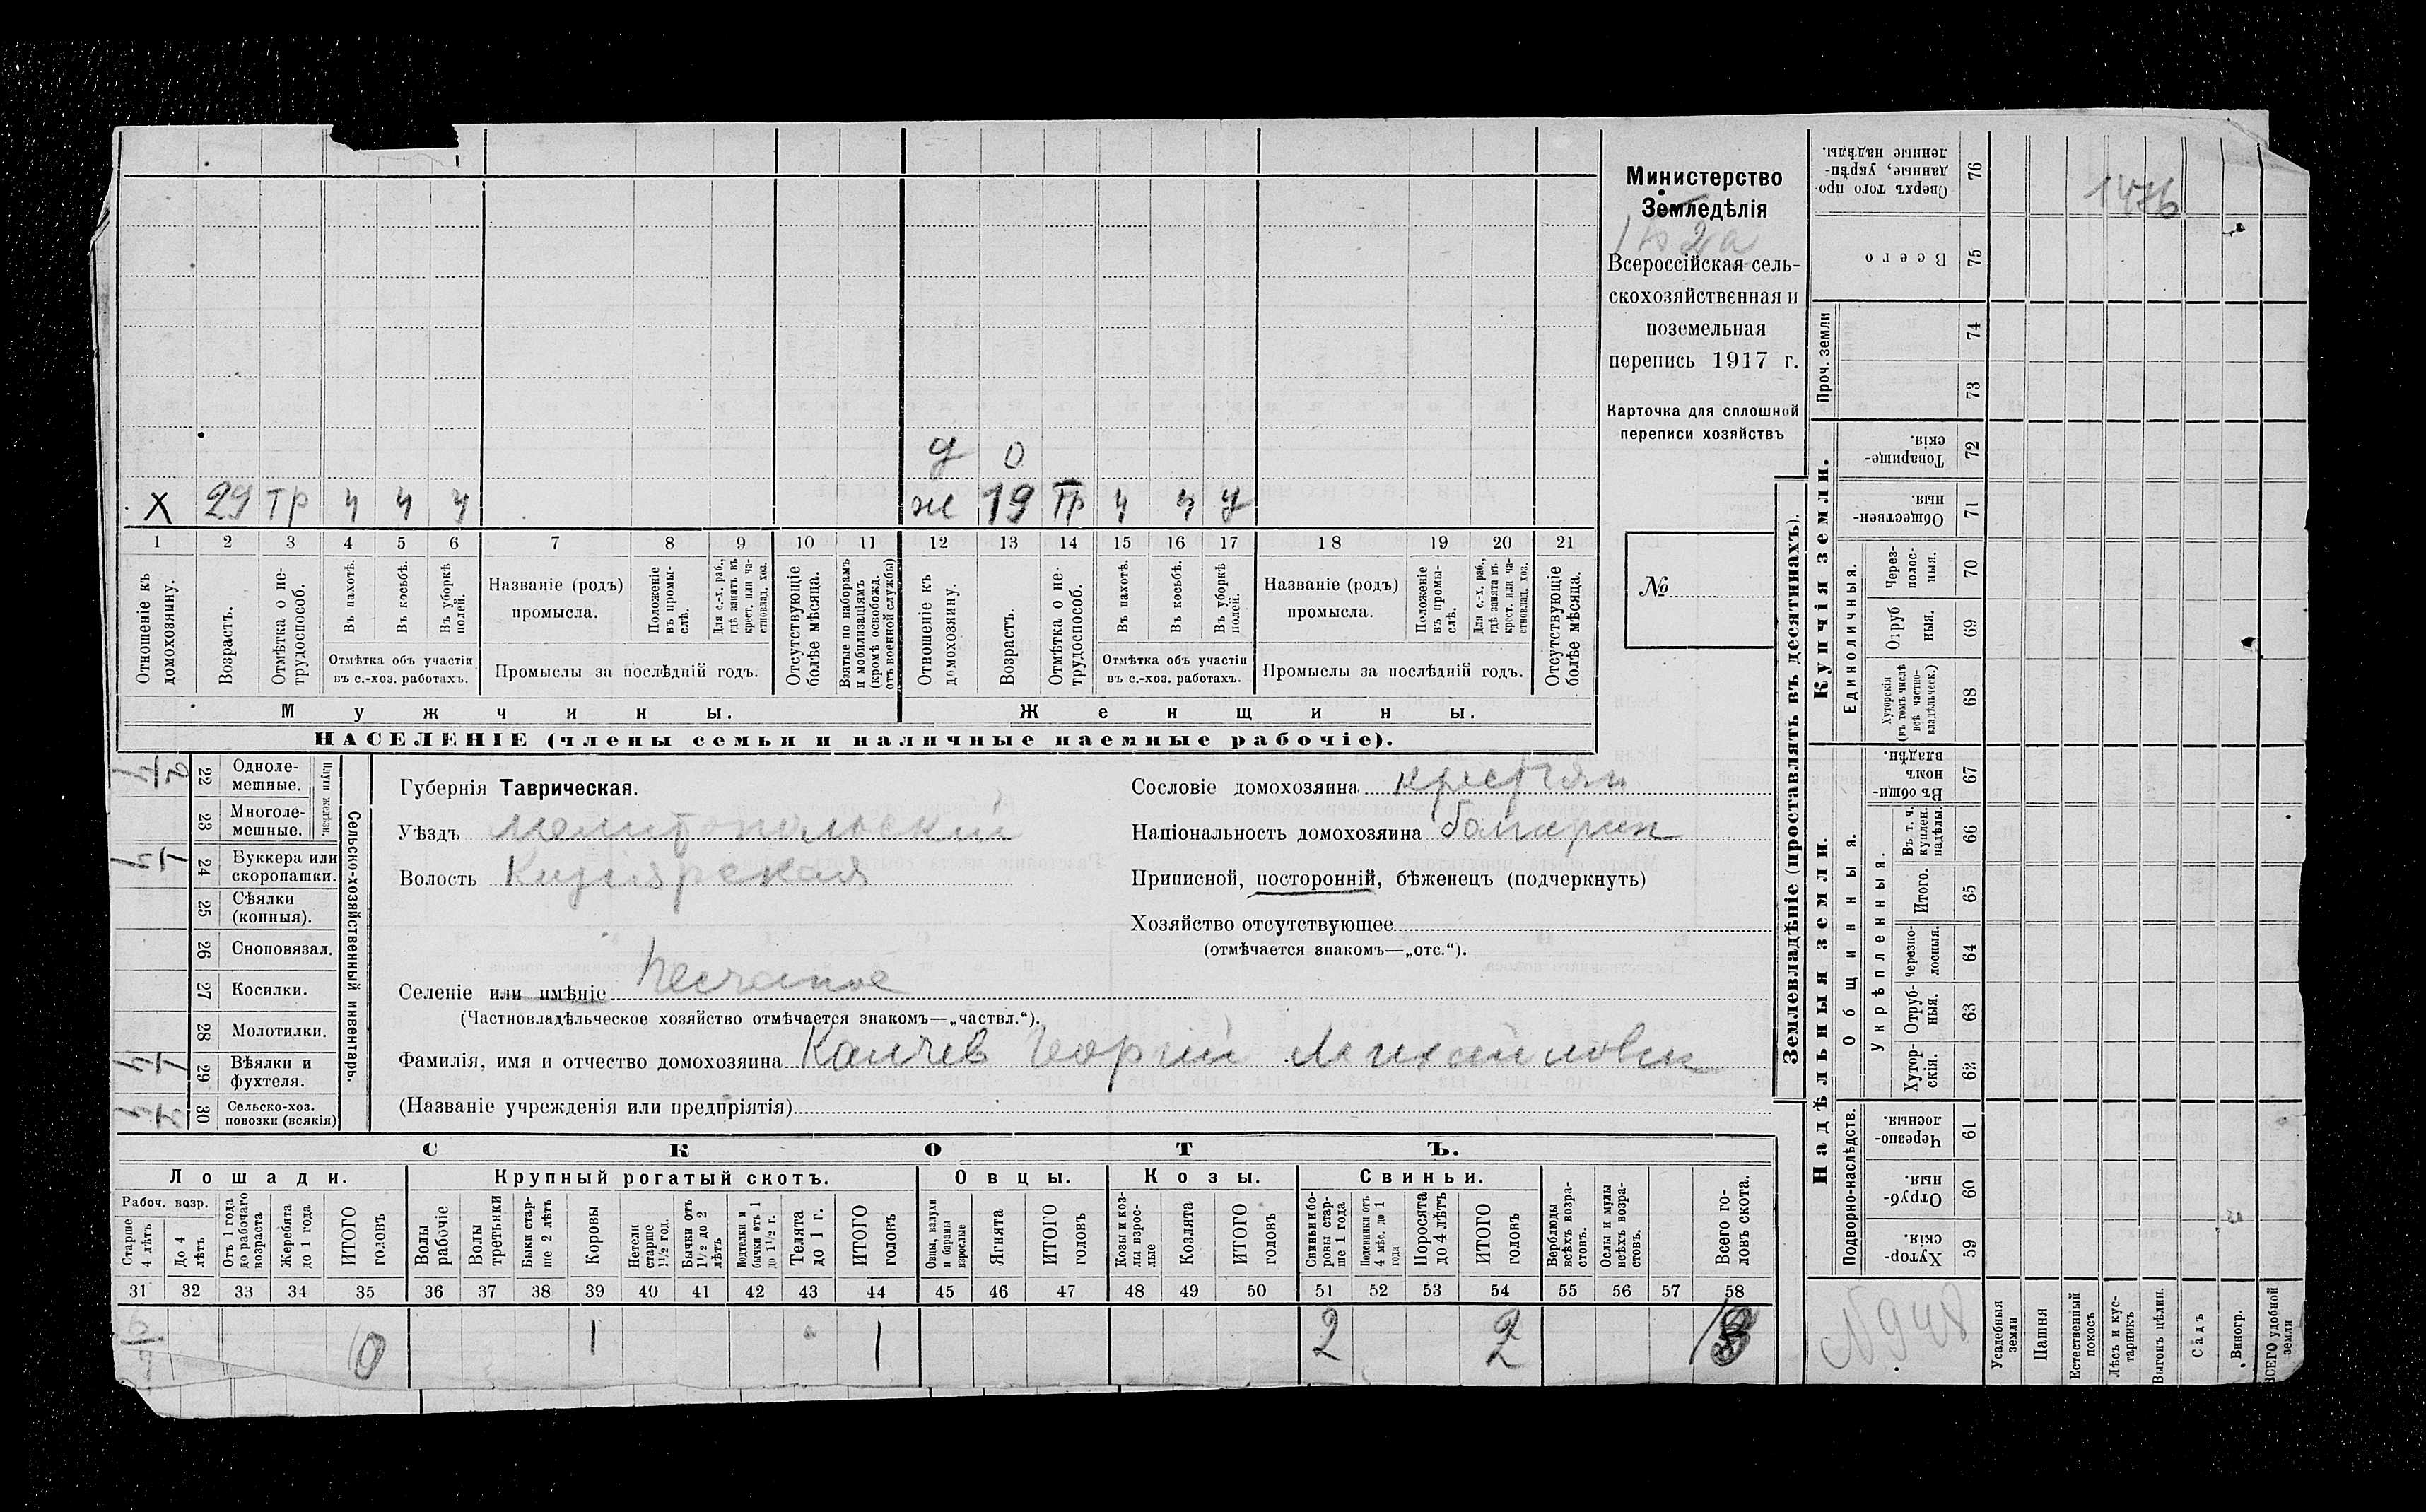 Министерство
Земледѣлія
Всероссійская сель-
скохозяйственная и
поземельная
перепись 1917 г.
Карточка для сплошной
переписи хозяйствъ
№
д 0
х 29 тр ч ч ч ж 19 тр ч ч у
1 2 3 4 5 6 7 8 9 10 11 12 13 14 15 16 17 18 19 20 21
Отношеніе къ домохозяину.
Возрастъ.
Отмѣтка о не-трудоспособ.
Въ пахотѣ.
Въ косьбѣ.
Въ уборкѣ полей.
Отмѣтка объ участіи
въ с.-хоз. работахъ.
Названіе (родъ)
промысла.
Положеніе въ промы-слѣ.
Для с.-х. раб., гдѣ занятъ въ крест. или ча-стновлад. хоз.
Промыслы за послѣдній годъ.
Отсутствующіе болѣе мѣсяца.
Взятые по наборамъ и мобилизаціямъ (кромѣ освобожд. отъ военной службы)
Отношеніе къ домохозяину.
Возрастъ.
Отмѣтка о не-трудоспособ.
Въ пахотѣ.
Въ косьбѣ.
Въ уборкѣ полей.
Отмѣтка объ участіи
въ с.-хоз. работахъ.
Названіе (родъ)
промысла.
Положеніе въ промы-слѣ.
Для с.-х. раб., гдѣ занята въ крест. или ча-стновлад. хоз.
Промыслы за послѣдній годъ.
Отсутствующіе болѣе мѣсяца.
Мужчины. Женщины.
НАСЕЛЕНІЕ (члены семьи и наличные наемные рабочіе).
Сельско-хозяйственный инвентарь.
Плуги желѣзн.
22 Одноле-мешные.
23 Многоле-мешные.
24 Буккера или скоропашки.
25 Сѣялки (конныя).
26 Сноповязал.
27 Косилки.
28 Молотилки.
29 Вѣялки и фухтеля.
30 Сельско-хоз. повозки (всякія)
Губернія Таврическая.
Уѣздъ Мелитопольскій
Волость Кизіярская
Селеніе или имѣніе Песчаное
(Частновладѣльческое хозяйство отмѣчается знакомъ—„частвл.“).
Фамилія, имя и отчество домохозяина Калчев Георгій Михайлович
(Названіе учрежденія или предпріятія)
Сословіе домохозяина крестьян
Національность домохозяина болгарин
Приписной, посторонній, бѣженецъ (подчеркнуть)
Хозяйство отсутствующее
(отмѣчается знакомъ—„отс.“).
СКОТЪ.
Лошади. Крупный рогатый скотъ. Овцы. Козы. Свиньи.
Рабоч. возр.
Старше 4 лѣтъ
До 4 лѣтъ
Отъ 1 года до рабочаго возраста
Жеребята до 1 года
ИТОГО головъ
Волы рабочіе
Волы третьяки
Быки стар-ше 2 лѣтъ
Коровы
Нетели старше 1½ год.
Бычки отъ 1½ до 2 лѣтъ
Подтелки и бычки отъ 1 до 1½ г.
Телята до 1 г.
ИТОГО головъ
Овцы, валухи и бараны взрослые
Ягнята
ИТОГО головъ
Козы и коз-лы взрос-лые
Козлята
ИТОГО головъ
Свиньи и бо-ровы стар-ше 1 года
Подсвинки отъ 4 мѣс. до 1 года
Поросята до 4 лѣтъ
ИТОГО головъ
Верблюды всѣхъ возра-стовъ.
Ослы и мулы всѣхъ возра-стовъ.
Всего го-ловъ скота.
31 32 33 34 35 36 37 38 39 40 41 42 43 44 45 46 47 48 49 50 51 52 53 54 55 56 57 58
0 1 1 2 2
Землевладѣніе (проставлять въ десятинахъ).
Купчія земли.
Надѣльныя земли.
Сверхъ того про-данные, укрѣп-ленные надѣлы. 76
Всего 75
Проч. земли
74
73
Товарище-скія. 72
Обществен-ныя. 71
Единоличныя.
Через-полос-ныя. 70
Отруб-ныя. 69
Хуторскія (въ томъ числѣ всѣ частно-владѣльческ.) 68
Общинныя.
Въ общи-номъ владѣн. 67
Укрѣпленныя.
Въ т. ч. куплен. надѣлы. 66
Итого. 65
Черезпо-лосныя. 64
Отруб-ныя. 63
Хутор-скія. 62
Подворно-наслѣдств.
Черезпо-лосныя. 61
Отруб-ныя. 60
Хутор-скія. 59
1476
N948
Усадебныя земли
Пашня
Естественный покосъ
Лѣсъ и кус-тарникъ
Выгонъ цѣлин.
Садъ
Виногр.
ВСЕГО удобной земли